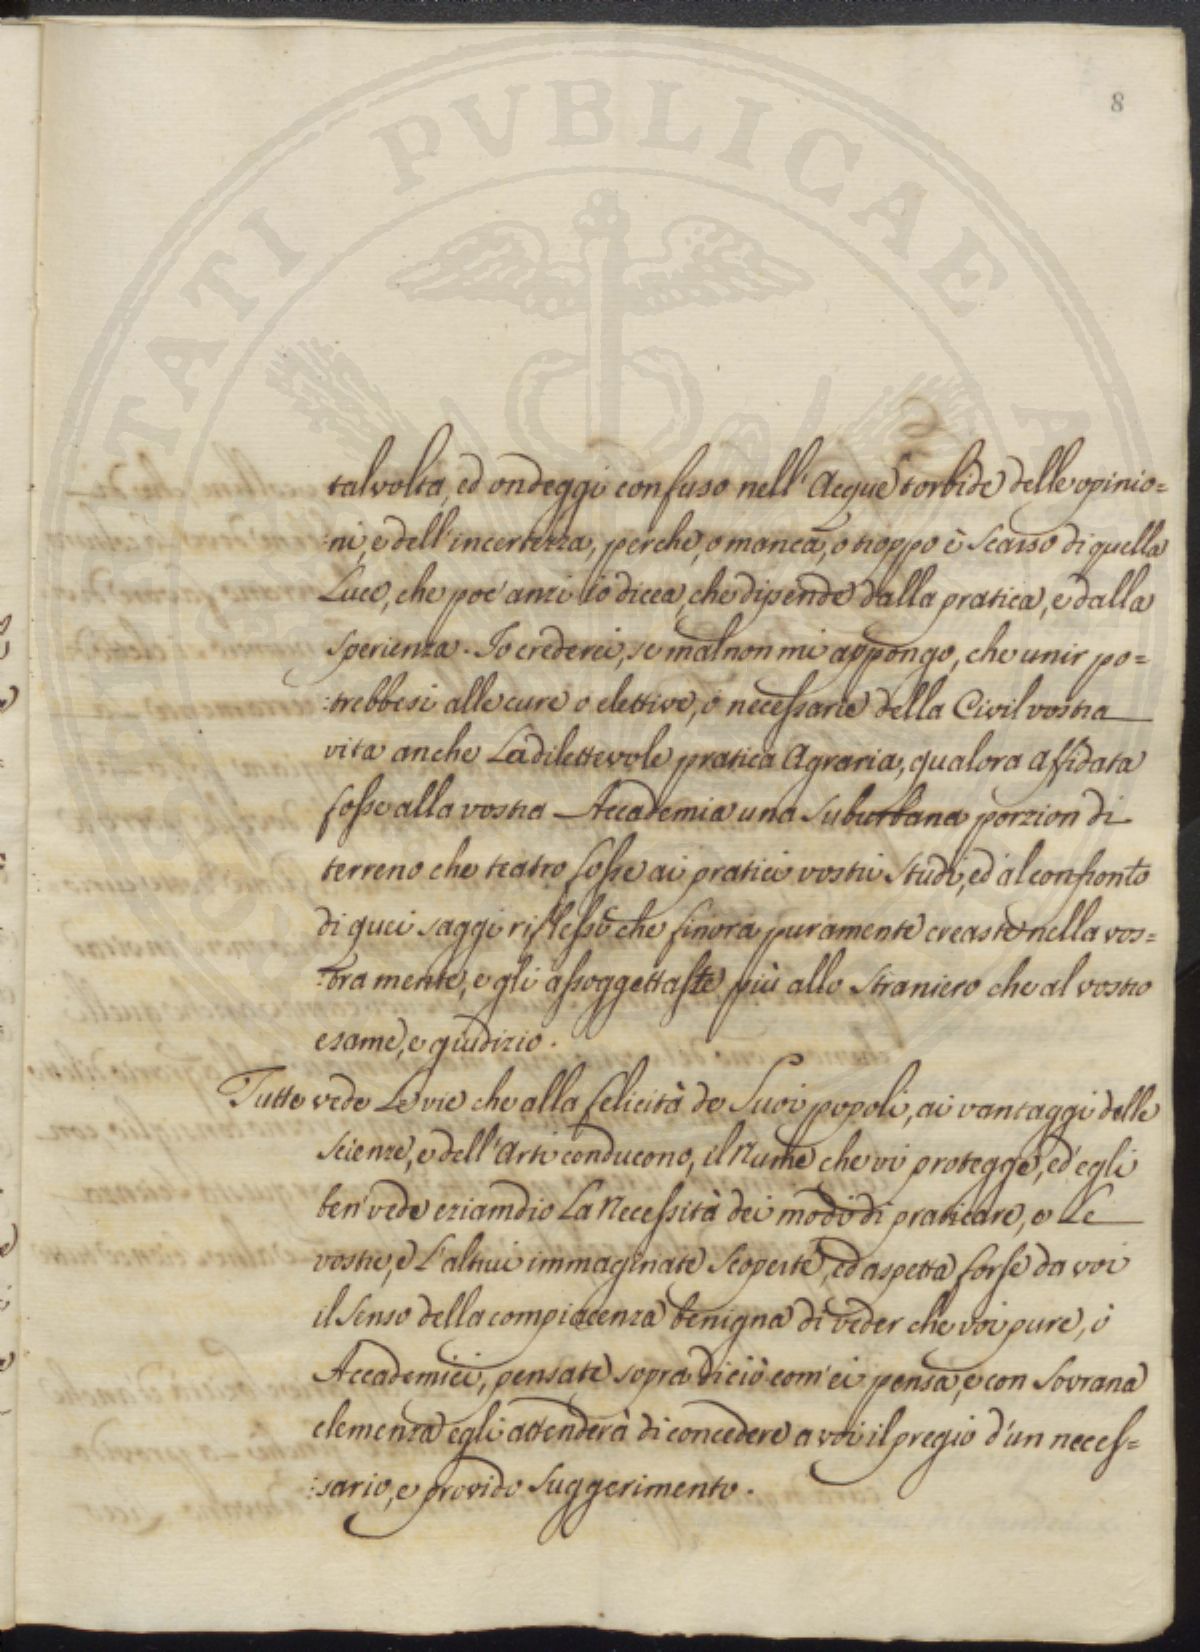 PROSPERITATI PVBLICAE A
8
talvolta, ed ondeggi confuso nell'Acque torbide delle opinio=
:ni, e dell'incertezza, perche, o manca, o troppo è Scarso di quella
Luce, che poc'anzi io dicea, che dipende dalla pratica, e dalla
sperienza. Io crederei, se mal non mi appongo, che unir po=
:trebbesi alle cure o elettive, o necessarie della Civil vostra
vita anche La dilettevole pratica Agraria, qualora affidata
fosse alla vostra Accademia una Suburbana porzion di
terreno che teatro fosse ai pratici vostri Studi, ed al confronto
di quei saggi riflessi che finora puramente creaste nella vos=
:tra mente, e gli assoggettaste più allo Straniero che al vostro
esame, e giudizio.
Tutte vede Le vie che alla felicità de Suoi popoli, ai vantaggi delle
scienze, e dell'Arti conducono, il Nume che vi protegge, ed egli
ben vede eziamdio La Necessità dei modi di praticare, e Le
vostre, e L'altrui immaginate Scoperte, ed aspetta forse da voi
il Senso della compiacenza benigna di veder che voi pure, o
Accademici, pensate sopra di ciò com'ei pensa, e con Sovrana
clemenza egli attenderà di concedere a voi il pregio d'un neces=
:sario, e provido Suggerimento.